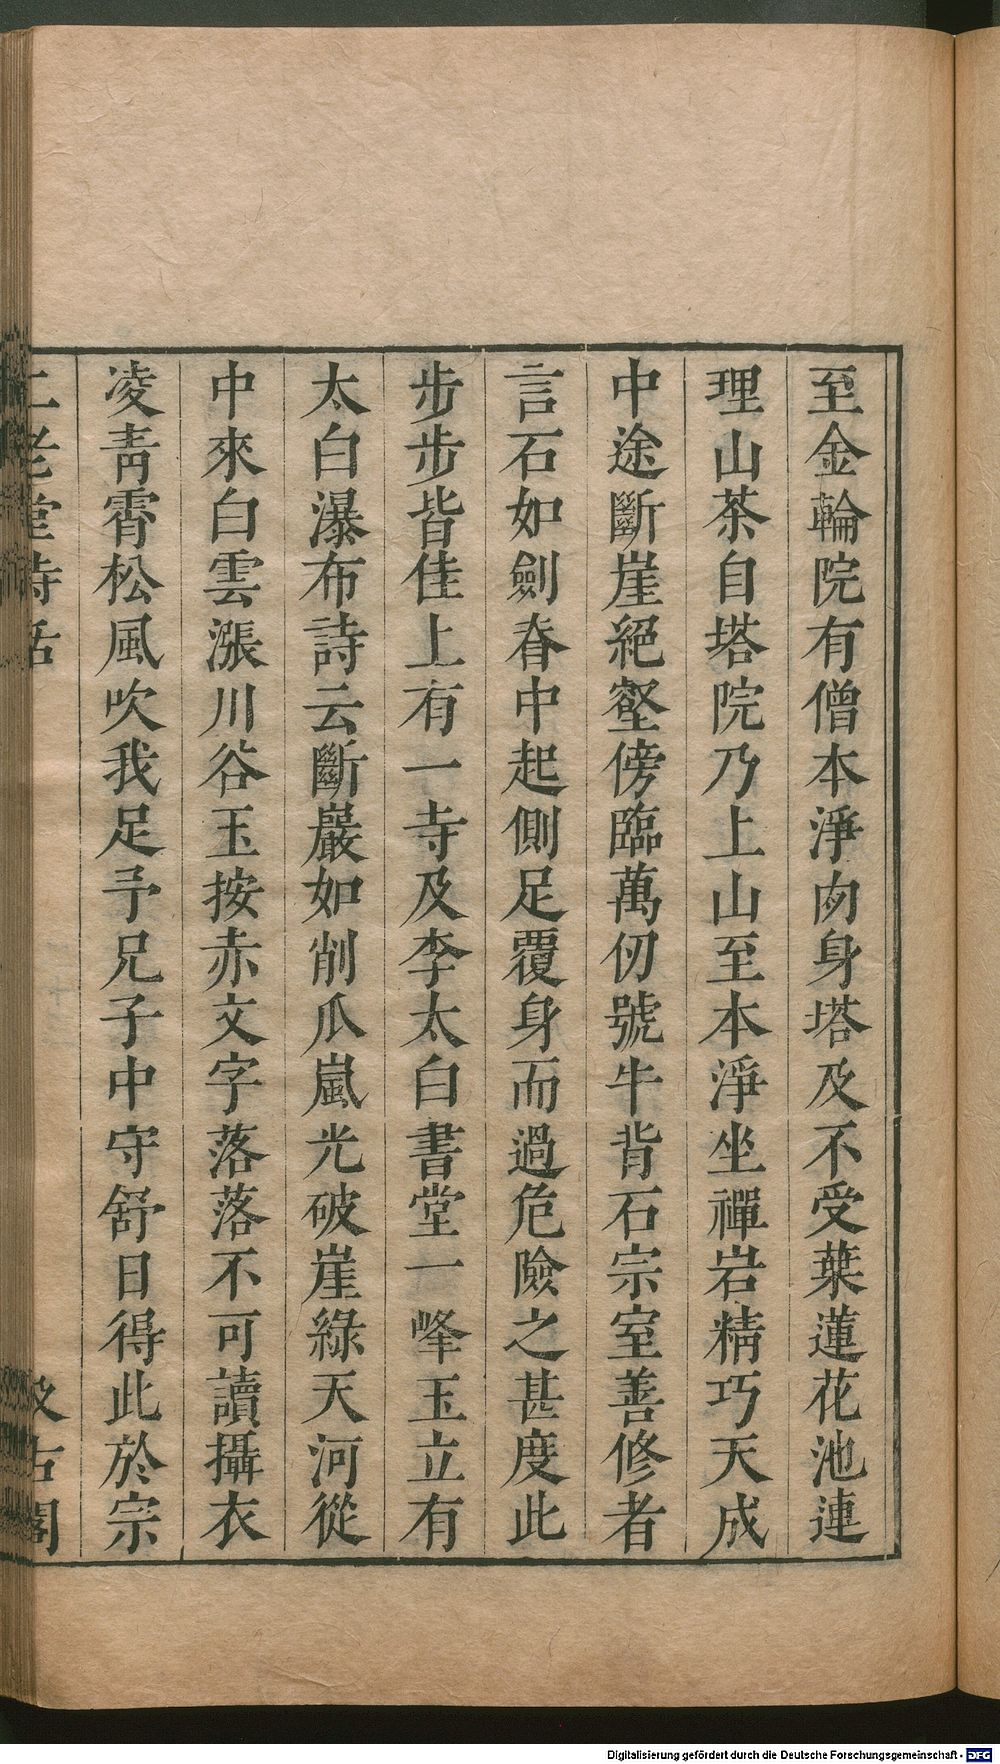 至金輪院有僧本淨肉身塔及不受葉蓮花池連
理山茶自塔院乃上山至本淨坐禪岩精巧天成
中途斷崖絕壑傍臨萬仞號牛背石宗室善修者
言石如劍脊中起側足覆身而過危險之甚度此
步步皆佳上有一寺及李太白書堂一峰玉立有
太白瀑布詩云斷巖如削瓜嵐光破崖綠天河從
中來白雲漲川谷玉按赤文字落落不可讀攝衣
凌靑霄松風吹我足予兄子中守舒日得此於宗
二老堂詩話 汲古閣
Digitalisierung gefördert durch die Deutsche Forschungsgemeinschaft - DFG